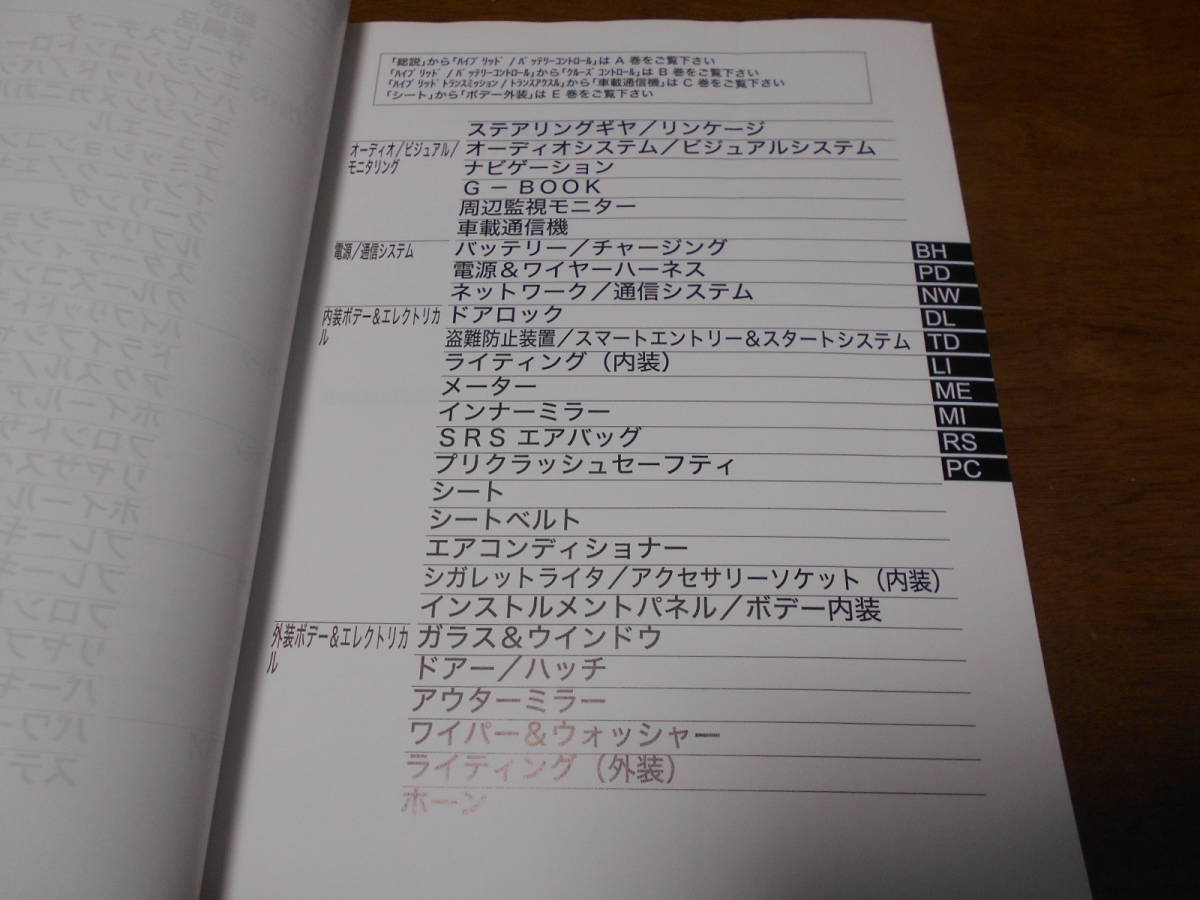 ｢総説｣から｢ﾊｲﾌﾞﾘｯﾄﾞ/ﾊﾞｯﾃﾘｰｺﾝﾄﾛｰﾙ｣は A 巻をご覧下さい
｢ﾊｲﾌﾞﾘｯﾄﾞ/ﾊﾞｯﾃﾘｰｺﾝﾄﾛｰﾙ｣から｢ｸﾙｰｽﾞｺﾝﾄﾛｰﾙ｣は B 巻をご覧下さい
｢ﾊｲﾌﾞﾘｯﾄﾞﾄﾗﾝｽﾐｯｼｮﾝ/ﾄﾗﾝｽｱｸｽﾙ｣から｢車載通信機｣は C 巻をご覧下さい
｢シート｣から｢ボデー外装｣は E 巻をご覧下さい
ステアリングギヤ／リンケージ
オーディオ/ビジュアル/モニタリング オーディオシステム／ビジュアルシステム
ナビゲーション
Ｇ－ＢＯＯＫ
周辺監視モニター
車載通信機
電源/通信システム バッテリー／チャージング BH
電源＆ワイヤーハーネス PD
ネットワーク／通信システム NW
内装ボデー&エレクトリカル ドアロック DL
盗難防止装置／スマートエントリー＆スタートシステム TD
ライティング（内装） LI
メーター ME
インナーミラー MI
ＳＲＳ エアバッグ RS
プリクラッシュセーフティ PC
シート
シートベルト
エアコンディショナー
シガレットライタ／アクセサリーソケット（内装）
インストルメントパネル／ボデー内装
外装ボデー&エレクトリカル ガラス＆ウインドウ
ドアー／ハッチ
アウターミラー
ワイパー＆ウォッシャー
ライティング（外装）
ホーン